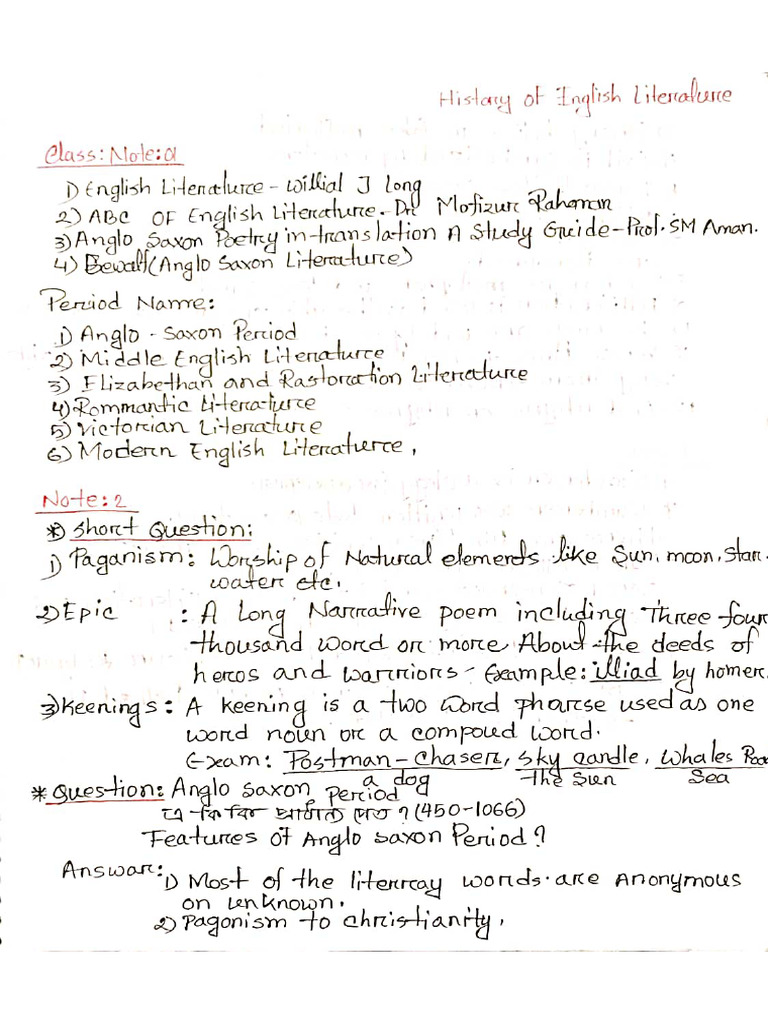 History of English Literature
Class: Note: 01
1) English Literature - Willial J Long
2) ABC OF English Literature. Dr. Mofizur Rahaman
3) Anglo Saxon Poetry in translation A Study Guide - Prof. SM Aman.
4) Bewalf (Anglo Saxon Literature)
Period Name:
1) Anglo - Saxon Period
2) Middle English Literature
3) Elizabethan and Rastoration Literature
4) Rommantic Literature
5) Victorian Literature
6) Modern English Literature,
Note: 2
* Short Question:
1) Paganism: Worship of Natural elements like Sun, moon, Star.
water etc.
2) Epic : A Long Narrative poem including Three four
thousand word or more About the deeds of
heros and warriors - Example: illiad by homer.
3) Keenings: A keening is a two word pharse used as one
word noun or a compoud word.
Exam: Postman - chaser, sky candle, Whales Roa
a dog The Sun Sea
* Question: Anglo Saxon Period
এ কি কি (450-1066)
Features of Anglo Saxon Period?
Answar: 1) Most of the literray words are anonymous
or unknown.
2) Pagonism to christianity,